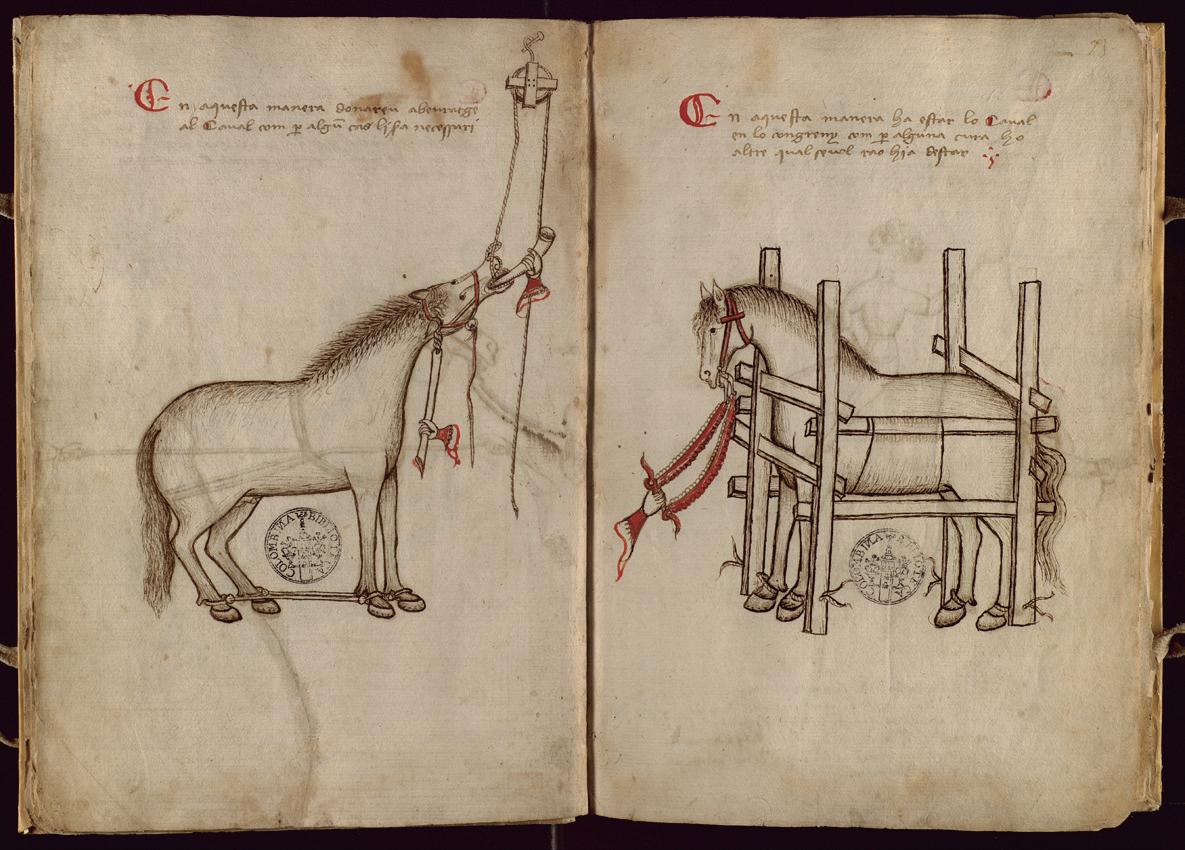 En aquesta manera donareu abeuratge
al Caual com p algu cas li sia necessari
En aquesta manera ha estar lo Caual
en lo congreny com p alguna cura ho
altre qualseuol rao hia destar
COLOMBINA BIBLIOTECA
COLOMBINA